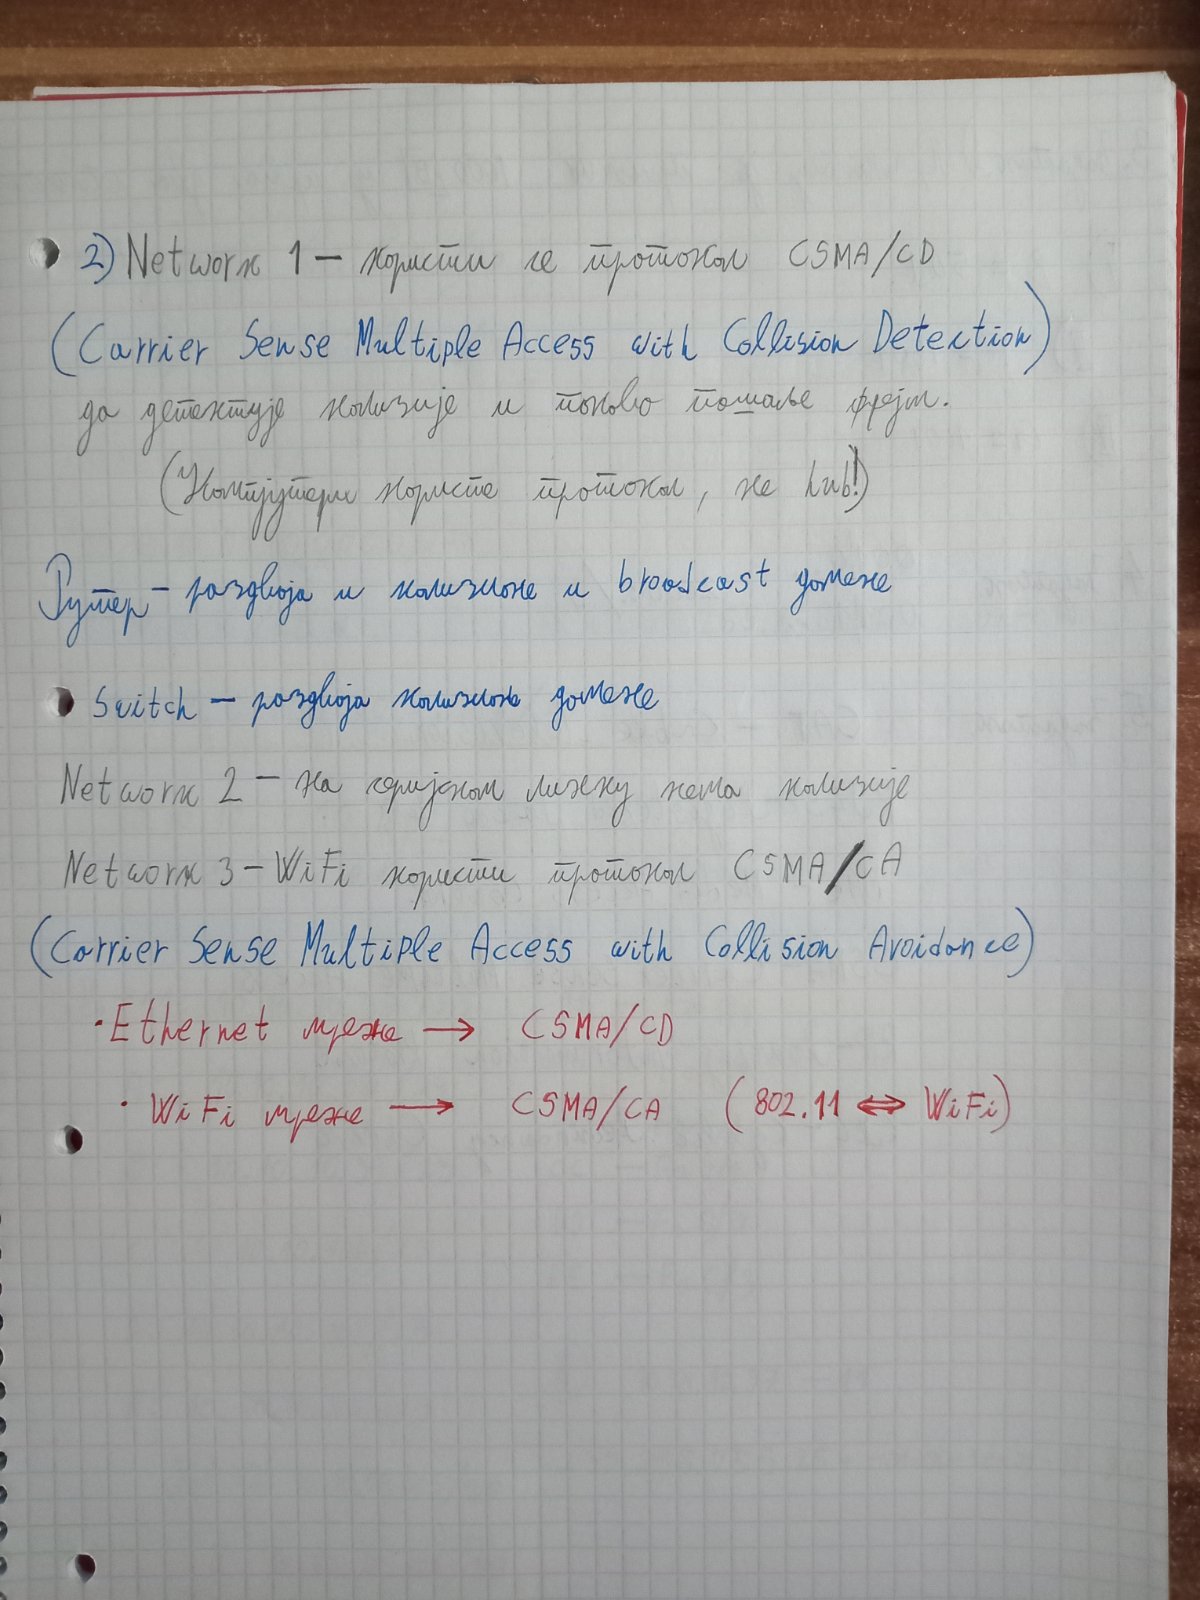 2) Network 1 – користи се протокол CSMA/CD
(Carrier Sense Multiple Access with Collision Detection)
да детектује колизије и поново пошаље фрејм.
(Компјутери користе протокол, не hub!)
Рутер – раздваја и колизионе и broadcast домене
Switch – раздваја колизионе домене
Network 2 – на серијском линку нема колизије
Network 3 – WiFi користи протокол CSMA/CA
(Carrier Sense Multiple Access with Collision Avoidance)
• Ethernet мреже → CSMA/CD
• WiFi мреже → CSMA/CA (802.11 ⇔ WiFi)